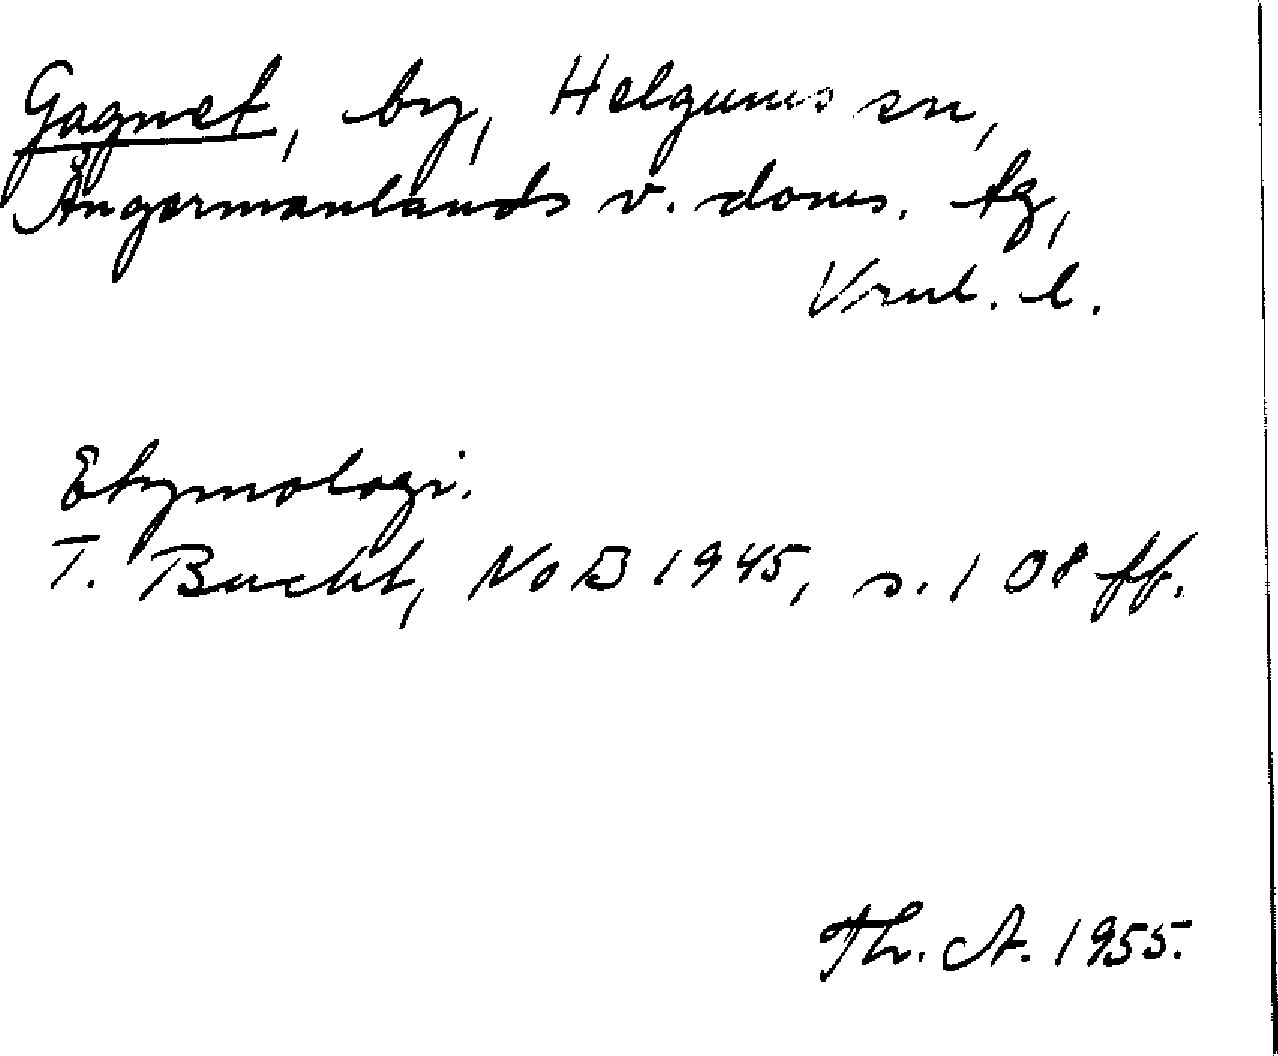 Gagnet, by, Helgums sn,
Ångermanlands v. doms. tg,
Vnl. l.
Etymologi.
T. Bucht, NoB 1945, s. 108 ff.
Th. A. 1955.